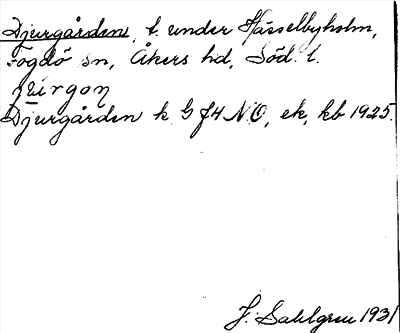 Djurgården, t. under Hässelbyholm,
Fogdö sn, Åkers hd, Söd. l.
Djurgården k. G f4 N.O, ek, kb 1925.
J. Sahlgren 1931